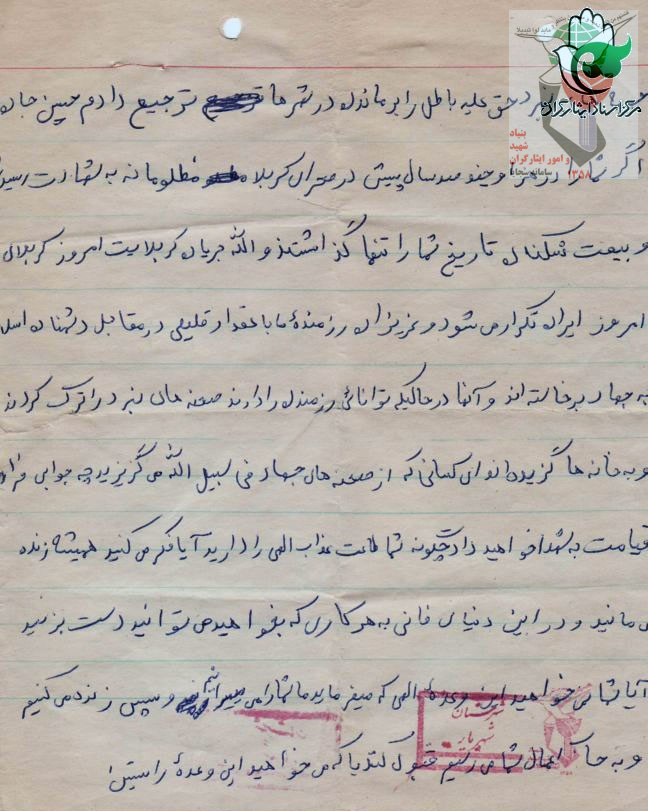 مرکز اسناد ایثارگران
بنیاد
شهید
و امور ایثارگران
سامانه سجایا
۱۳۵۸
نبرد حق علیه باطل را بر ماندن در شهرها ترجیع دادم حسین جان
اگر شما در هزار و چند صد سال پیش در صحرای کربلا مظلومانه به شهادت رسید
و بیعت شکنان تاریخ شما را تنها گذاشتند و الله جریان کربلایت امروز کربلای
امروز ایران تکرار می شود و عزیزان رزمندۀ ما با مقدار قلیلی در مقابل دشمنان اسلا
به جهاد برخاسته اند و آنها در حالیکه توانائی رزمندن را دارند صحنه های نبرد را ترک کردند
و به خانه ها گزیده اند ای کسانی که از صحنه های جهاد فی سبیل الله می گریزید چه جوابی فردای
قیامت به شهدا خواهید داد چگونه شما طاقت عذاب الهی را دارید آیا فکر می کنید همیشه زنده
می مانید و در این دنیای فانی به هر کاری که بخواهید می توانید دست بزنید
آیا شما نمی خواهید این وعدۀ الهی که میفرماید ما شما را می میرانیم و سپس زنده می کنیم
و به حساب اعمال شما می رسیم قبول کنید یا که می خواهید این وعدۀ راستین
شهرستان
شهریار